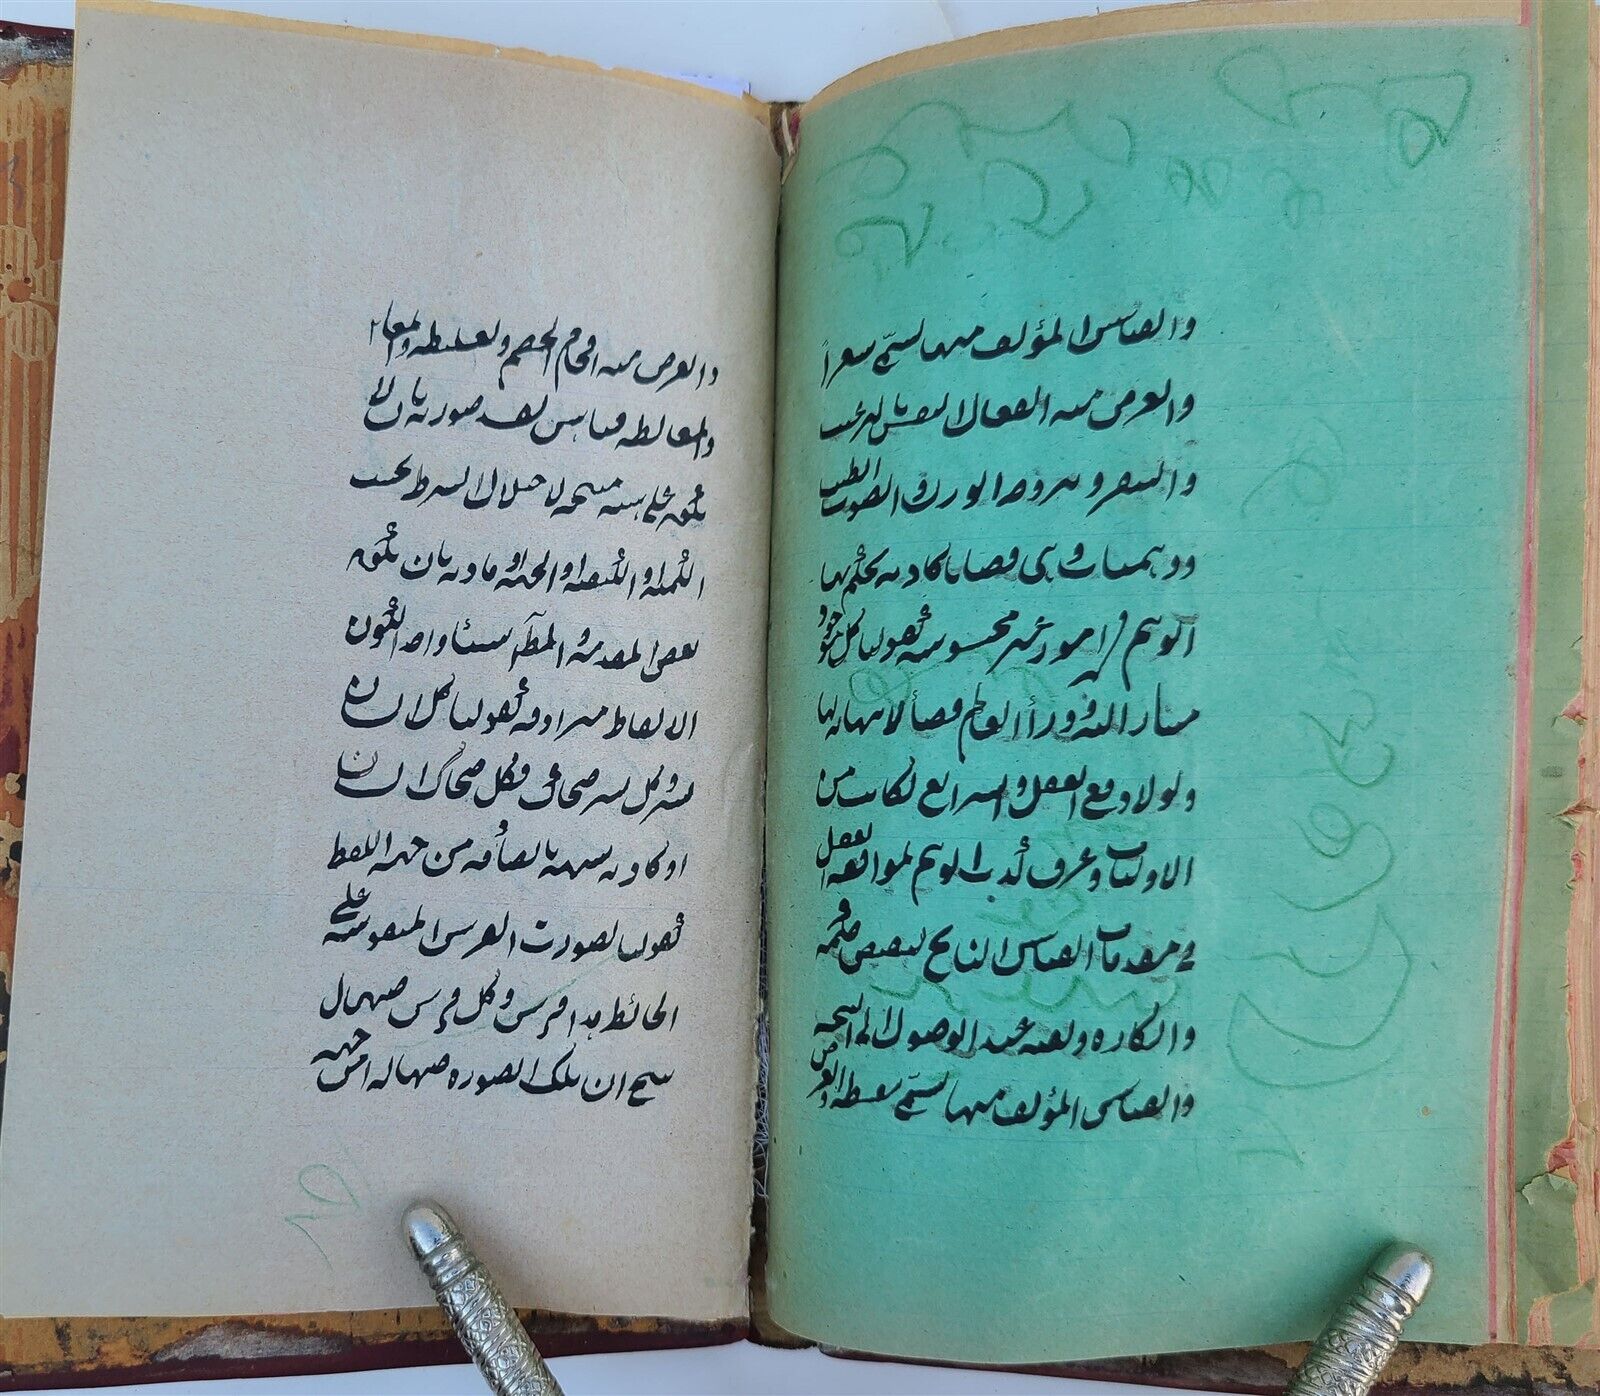 والقياس المؤلف منها يسمى شعراً
والغرض منه انفعال النفس بالترغيب
والتنفير ويروجه الوزن والصوت الطيب
ووهميات وهي قضايا كاذبة يحكم بها
الوهم في امور غير محسوسة كقولنا كل موجود
مشار اليه ووراء العالم فضأ لا نهاية لها
ولولا دفع العقل والشرايع لكانت من
الاوليات وعرف كذب الوهم لموافقة العقل
في مقدمات القياس الناتج لنقيض حكمه
وانكاره ونفيه عند الوصول الى النتيجة
والقياس المؤلف منها يسمى سفسطة والغرض
والغرض منه افحام الخصم وتغليطه والمغا
والمغالطة قياس يفسد صورته بان لا
يكون على هيئة منتجة لاختلال الشرط بحسب
الكمية او الكيفية او الجهة او مادته بان يكون
بعض المقدمة والمط شيئا واحدا لكون
الالفاظ مترادفة كقولنا كل انسان
بشر وكل بشر ضحاك فكل ضحاك انسان
او كاذبة شبيهة بالصادقة من جهة اللفظ
كقولنا لصورت الفرس المنقوشة على
الحائط هذا فرس وكل فرس صهال
ينتج ان تلك الصورة صهالة او من جهة